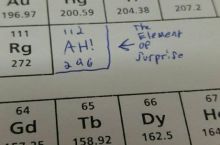 Au Hg
196.97 200.59 204.38 207.2
111 112 The
Rg AH! Element
272 296 OF
Surprise
64 65 66 67
Gd Tb Dy
158.92 162.5